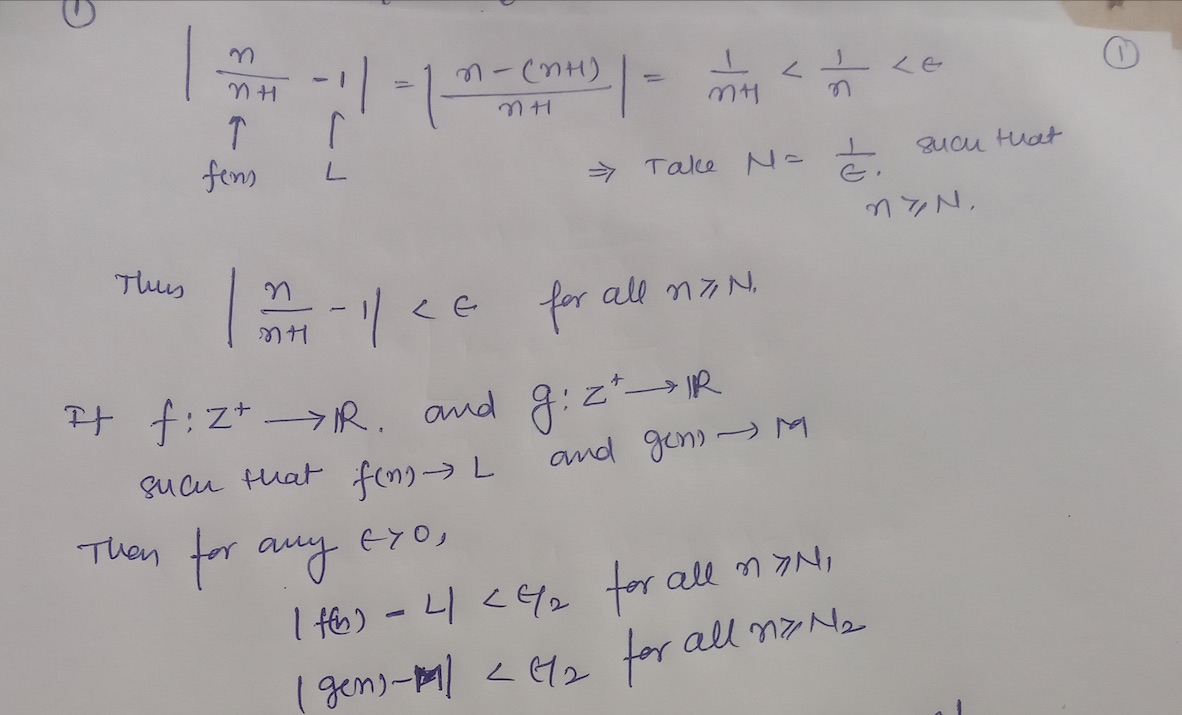 ①
①
| n/(n+1) - 1 | = | (n-(n+1))/(n+1) | = 1/(n+1) < 1/n < ϵ
↑ ↑
f(n) L
⇒ Take N = 1/ϵ. such that
n ≥ N.
Thus | n/(n+1) - 1 | < ϵ for all n ≥ N.
If f: Z⁺ → ℝ. and g: Z⁺ → ℝ
such that f(n) → L and g(n) → M
Then for any ϵ > 0,
| f(n) - L | < ϵ/2 for all n ≥ N₁
| g(n) - M | < ϵ/2 for all n ≥ N₂